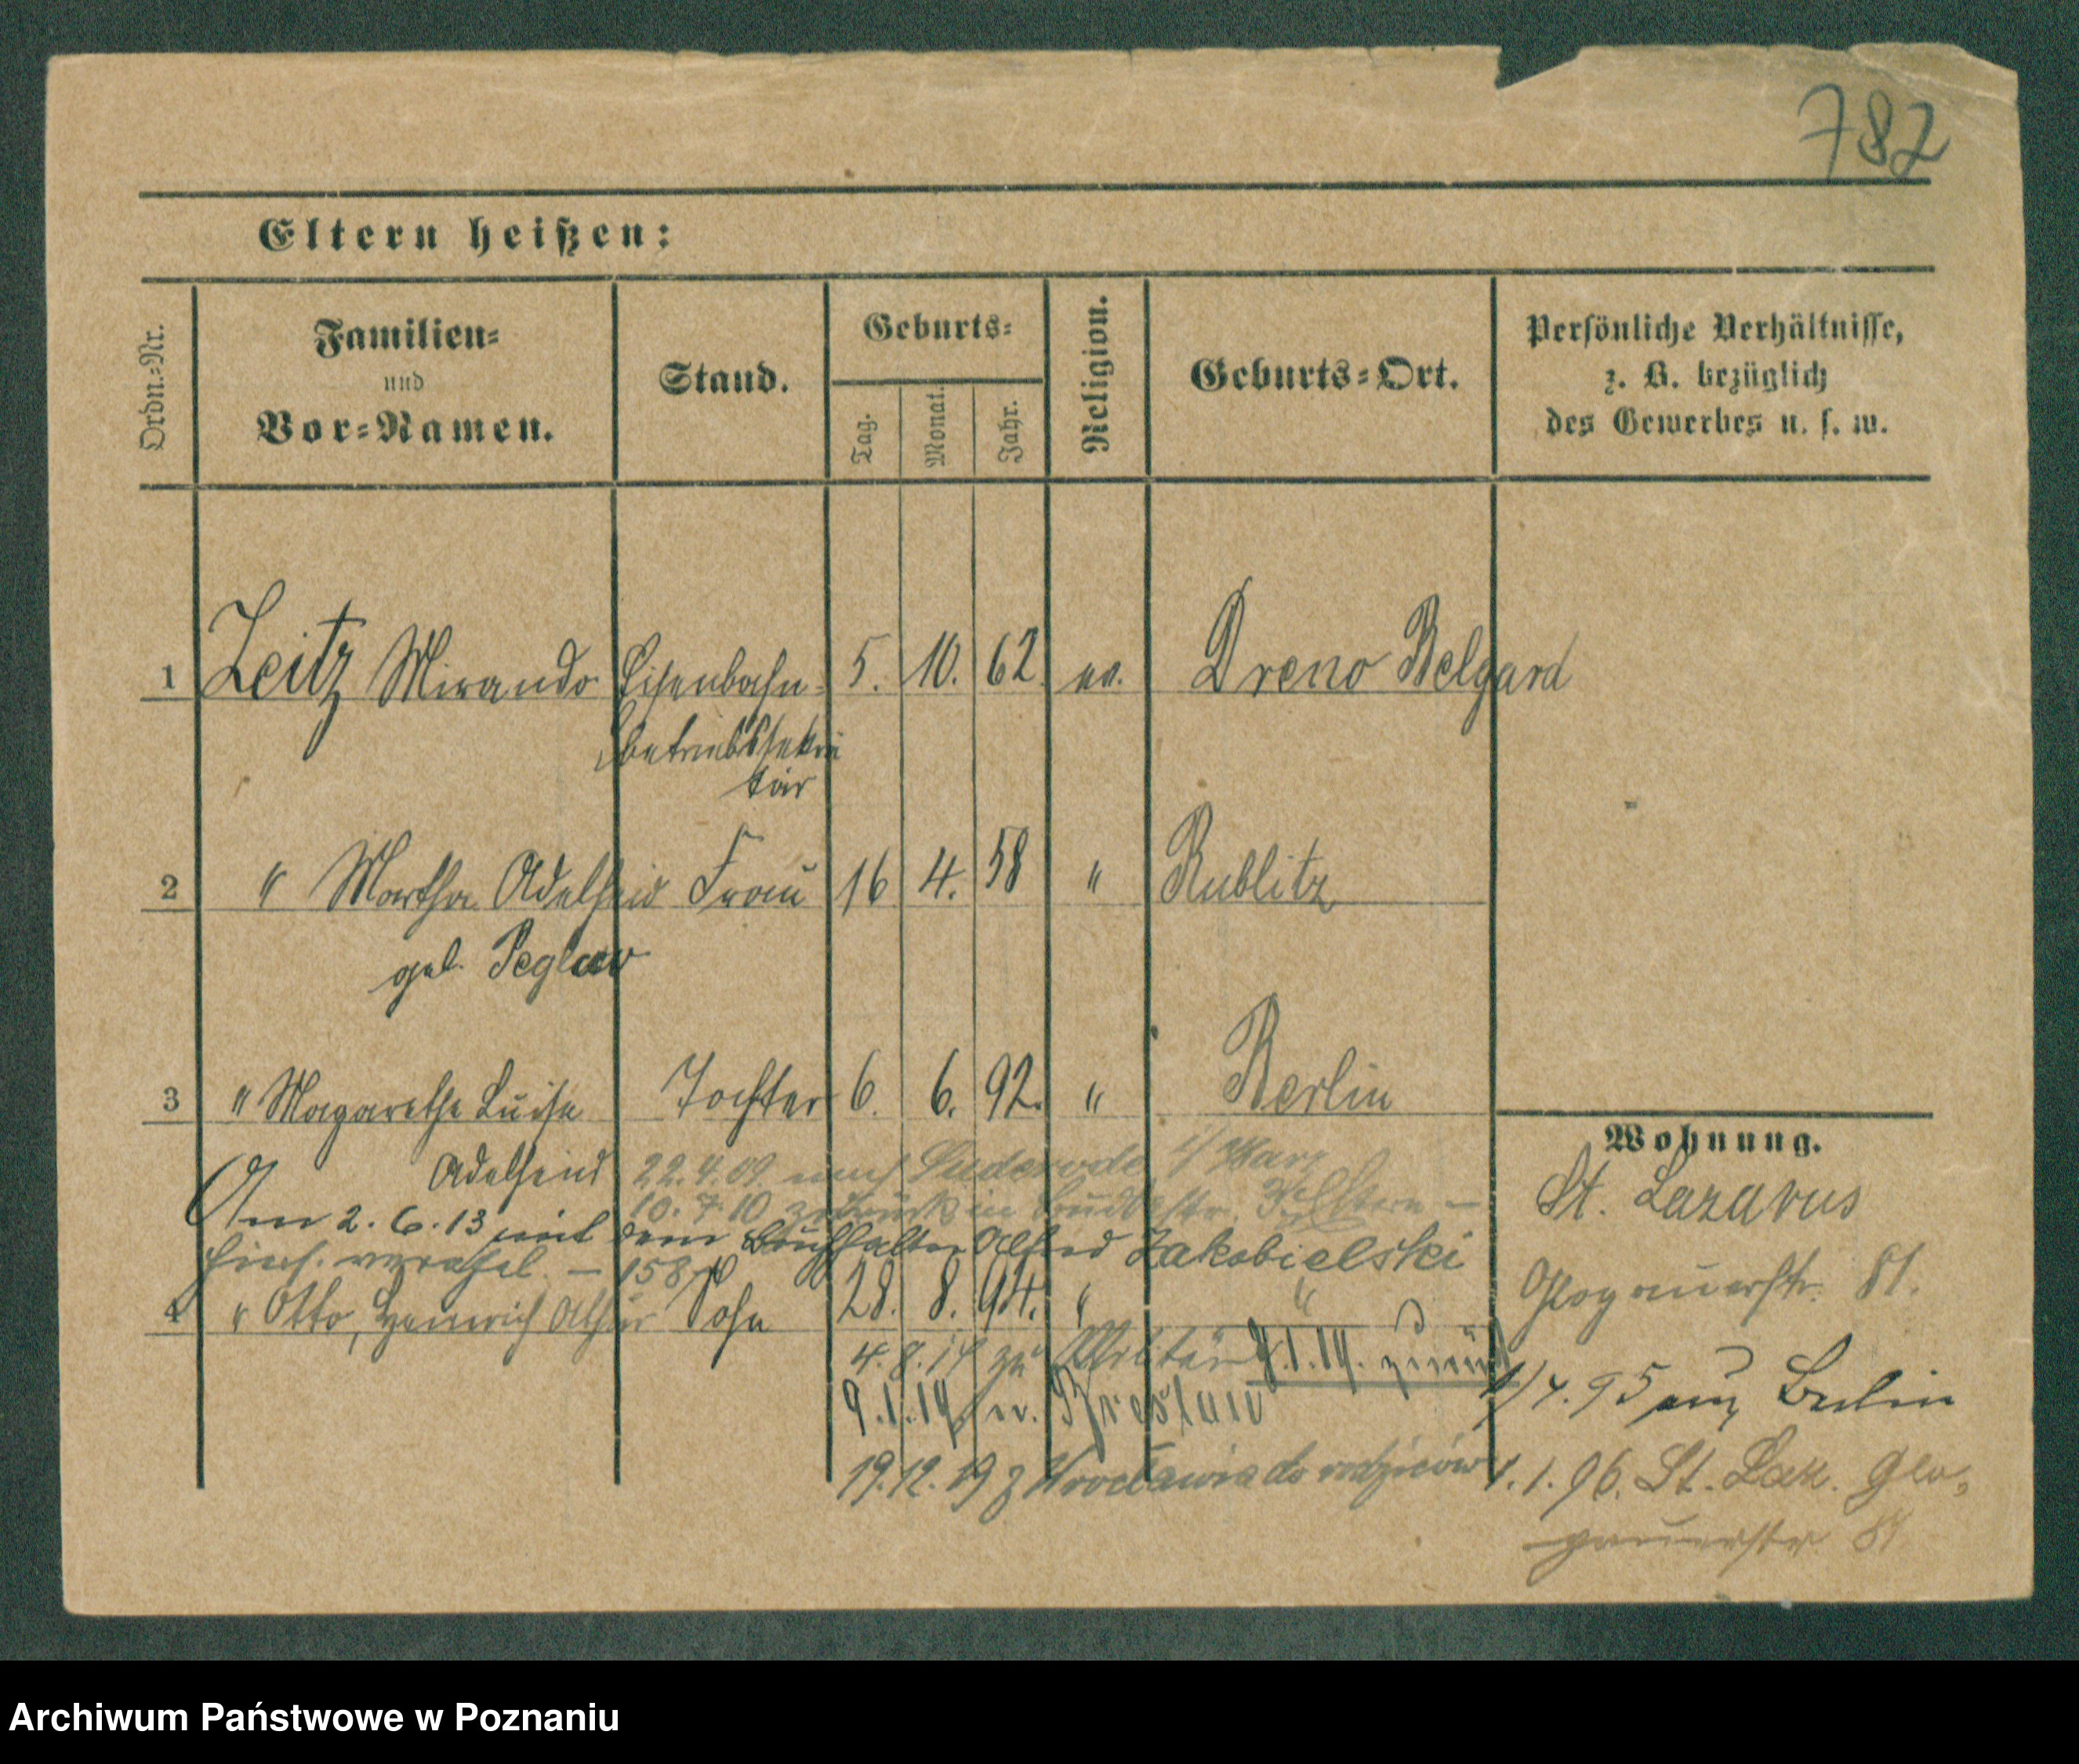 782
Eltern heißen:
Ordn.-Nr.
Familien-
und
Vor-Namen.
Stand.
Geburts-
Tag.
Monat.
Jahr.
Religion.
Geburts-Ort.
Persönliche Verhältnisse,
z. B. bezüglich
des Gewerbes u. s. w.
1 Leitz Mirando Eisenbahn- 5. 10. 62. ev. Dreno Belgard
betriebssekre
tär
2 " Martha Adelheid Frau 16 4. 58 " Bublitz
geb. Peglow
3 " Magarethe Luise Tochter 6. 6. 92. " Berlin
Adelheid
22.4.09. nach Suderode i/ Harz
10.7.10 zurück in
Am 2.6.13 mit dem Buchhalter Alfred Jakobielski
hies. verehel. – 158/
4 " Otto, Heinrich Athur Sohn 28. 8. 94. " "
4.8.14 zu Militär 9.1.19. zurück
9.1.19 n. Breslau
19.12.19 z Wrocławia do rodziców
Wohnung.
St. Lazarus
Glogauerstr. 81.
1/4.95 aus Berlin
1.1.96. St. Laz. Glo-
gauerstr. 81